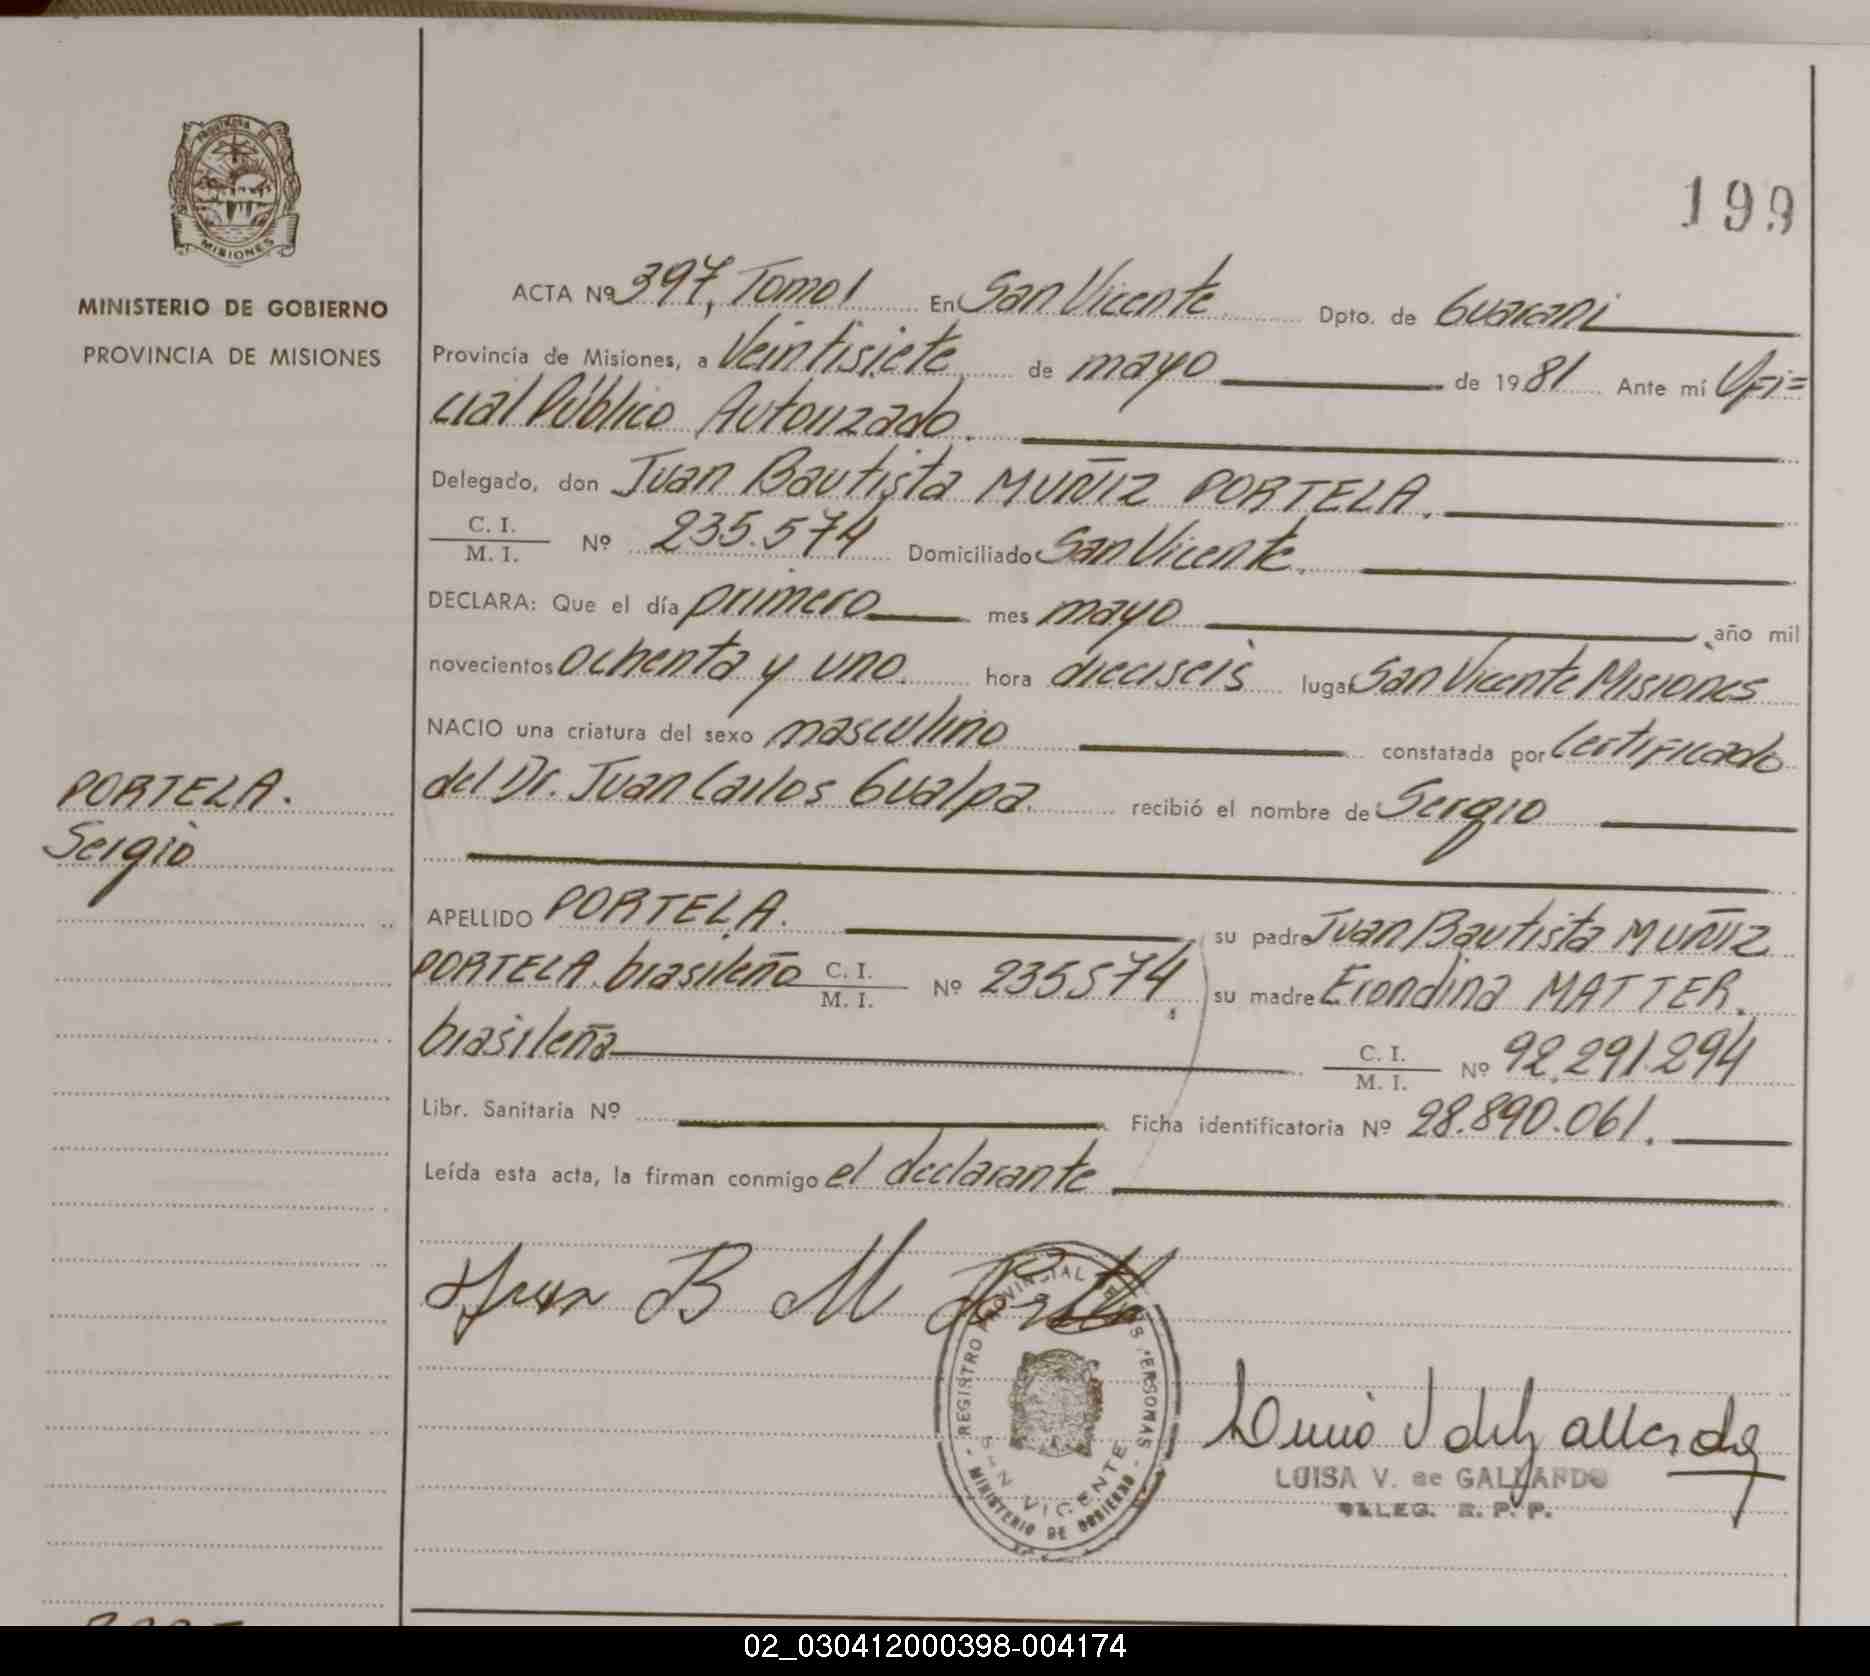 PROVINCIA DE
MISIONES
MINISTERIO DE GOBIERNO
PROVINCIA DE MISIONES
PORTELA.
Sergio
199
ACTA Nº 397, Tomo 1 En San Vicente Dpto. de Guarani
Provincia de Misiones, a Veintisiete de mayo de 1981 Ante mí Ofi=
cial Público Autorizado.
Delegado, don Juan Bautista MUÑIZ PORTELA.
C. I.
M. I. Nº 235.574 Domiciliado San Vicente.
DECLARA: Que el día primero mes mayo año mil
novecientos ochenta y uno. hora dieciseis lugar San Vicente Misiones
NACIO una criatura del sexo masculino constatada por Certificado
del Dr. Juan Carlos Gualpa. recibió el nombre de Sergio
APELLIDO PORTELA. su padre Juan Bautista MUÑIZ
PORTELA. brasileño C. I. M. I. Nº 235574. su madre Erondina MATTER.
brasileña C. I. M. I. Nº 92.291.294
Libr. Sanitaria Nº Ficha identificatoria Nº 28.890.061.
Leída esta acta, la firman conmigo el declarante
Juan B M Portela
REGISTRO PROVINCIAL DE LAS PERSONAS
SAN VICENTE
MINISTERIO DE GOBIERNO
LUISA V. de GALLARDO
DELEG. R. P. P.
02_030412000398-004174